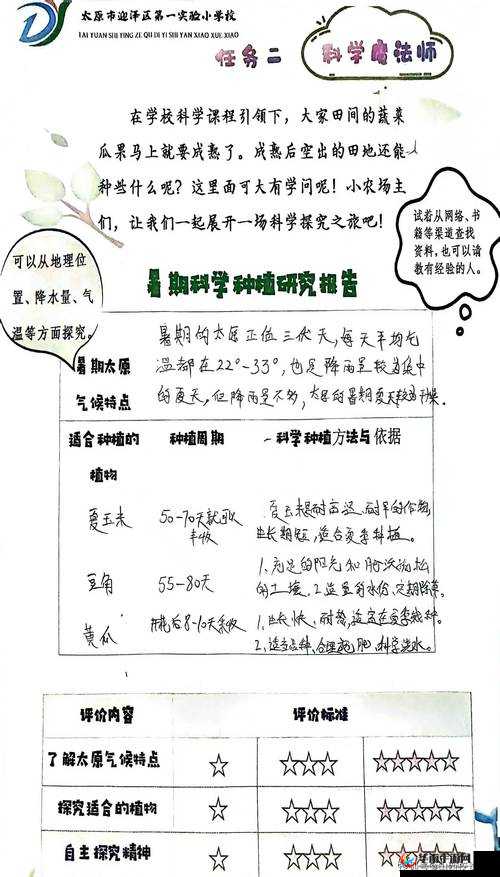 太原市迎泽区第一实验小学校
TAI YUAN SHI YING ZE QU DI YI SHI YAN XIAO XUE XIAO
任务二
科学魔法师
在学校科学课程引领下，大家田间的蔬菜
瓜果马上就要成熟了。成熟后空出的田地还能
种些什么呢？这里面可大有学问呢！小农场主
们，让我们一起展开一场科学探究之旅吧！
试着从网络、书
籍等渠道查找
资料，也可以请
教有经验的人。
可以从地理位
置、降水量、气
温等方面探究。
暑期科学种植研究报告
暑期太原
气候特点
暑期的太原正值三伏天，每天平均气
温都在22°-33°，也是降雨量较为集中
的夏天，但降雨量不多，太原的暑期夏天较为干燥。
适合种植的
植物
种植周期
科学种植方法与依据
夏玉米
50-70天就可以
丰收
夏玉米是耐高温、耐旱的作物，
生长期短，适合夏季种植。
豆角
55-80天
1、充足的阳光和肥沃疏松
的土壤，2、适量的水份，定期除草。
黄瓜
开花后8-10天采收
1、生长快、耐热，适宜在夏季栽种。
2、适当品种、合理施肥、科学浇水。
评价内容
评价标准
了解太原气候特点
☆
☆☆☆
☆☆☆☆☆
探究适合的植物
☆
☆☆☆
☆☆☆☆☆
自主探究精神
☆
☆☆☆
☆☆☆☆☆
华南手游网